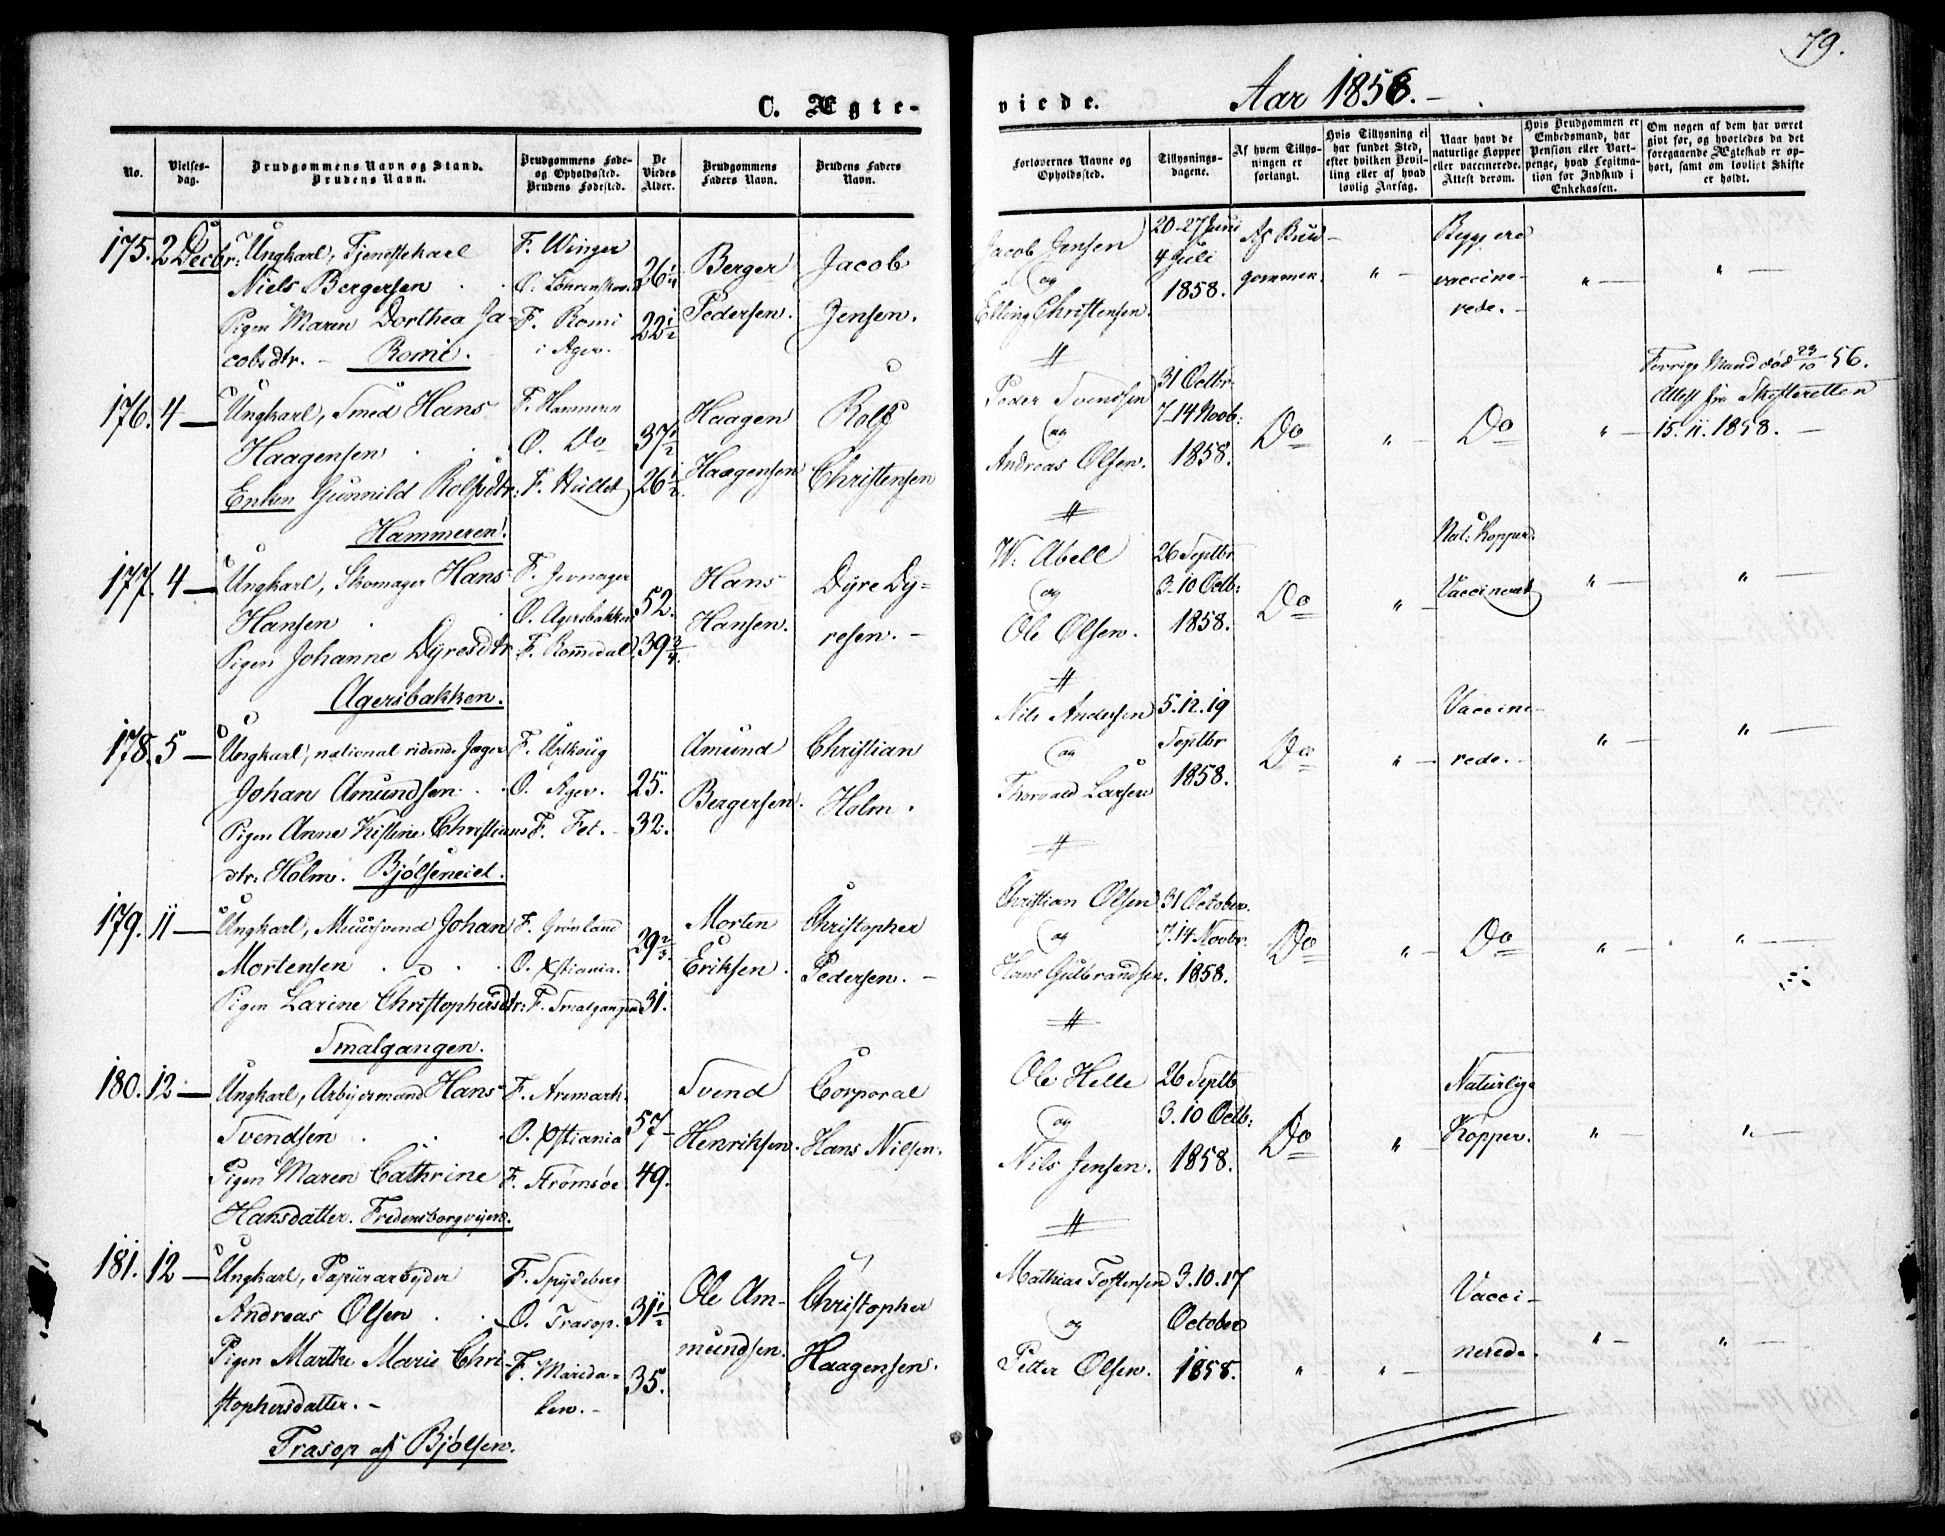 79.
C. Ægte-
viede.
Aar 1858.-
No.
Vielses-
dag.
Brudgommens Navn og Stand.
Brudens Navn.
Brudgommens Føde-
og Opholdssted.
Brudens Fødested.
De
Viedes
Alder.
Brudgommens
Faders Navn.
Brudens Faders
Navn.
Forlovernes Navne og
Opholdssted.
Tillysnings-
dagene.
Af hvem Tillys-
ningen er
forlangt.
Hvis Tillysning ei
har fundet Sted,
efter hvilken Bevil-
ling eller af hvad
lovlig Aarsag.
Naar havt de
naturlige Kopper
eller vaccinerede.
Attest derom.
Hvis Brudgommen er
Embedsmand, har
Pension eller Vart-
penge, hvad Legitima-
tion for Indskud i
Enkekassen.
Om nogen af dem har været
givt før, og hvorledes da det
foregaaende Ægteskab er op-
hørt, samt om lovligt Skifte
er holdt.
175. 2 Decbr: Ungkarl, Tjenestekarl F. Winger
Niels Bergersen 26 1/4 Berger Jacob
Pigen Maren Dorthea Ja- F. Romi 22 1/2 Pedersen. Jensen.
cobsdtr. - Romi. i Ager.
Jacob Jensen 20-27 Juni Af Brud- Begge ere
og 4 Juli gommen. " - vaccine- " - " -
Elling Christensen. 1858. rede. -
176. 4 - Ungkarl, Smed Hans F. Hammeren Haagen Rolf
Haagensen O. Do 37 1/2
Enken Gunnild Rolfsdtr: F. Hullet 26 1/2 Haagensen Christensen
Hammeren.
Peder Svendsen 31 Octbr. Forrige Mand død 23/10 56.
og 7-14 Novb: Do " - Do " - Attest fra Skifteretten
Andreas Olsen. 1858. 15.11.1858. -
177. 4 - Ungkarl, Skomager Hans F. Jevnager Hans Dyre Dy-
Hansen O. Agersbakken 52. Hansen. resen. -
Pigen Johanne Dyresdtr F. Rommedal 39 3/4.
Agersbakken.
W. Abell 26 Septbr Nat: Kopper.
og 3-10 Octb: Do " - Vaccineret " - " -
Ole Olsen. 1858.
178. 5 - Ungkarl, national ridende Jæger F. Ullensaker Amund Christian
Johan Amundsen. O. Ager. 25. Bergersen. Holm.
Pigen Anne Kistine Christians F. Fet. - 32.
dtr: Holm. Bjølseneiet.
Nils Andersen 5.12.19 Vaccine-
og Septbr Do " - rede. - " - " -
Thorvald Larsen 1858.
179. 11 - Ungkarl, Muursvend Johan F. Grønland Morten Christopher
Mortensen O. Xstiania. 29 2/3 Eriksen. Pedersen. -
Pigen Larine Christophersdtr: F. Smalgangen 31.
Smalgangen.
Christian Olsen 31 October.
og 7.14 Novbr. Do " - Do " - " -
Hans Gulbrandsen. 1858.
180. 12 - Ungkarl, Arbeidsmand Hans F. Aremark. Svend Corporal
Svendsen O. Xstiania 57 - Henriksen. Hans Nilsen.
Pigen Maren Cathrine F. Strømsøe 49.
Hansdatter. Fredensborgveien.
Ole Helle 26 Septb Naturlige
og 3.10 Octb: Do " - Kopper. " - " -
Nils Jensen. 1858.
181. 12 - Ungkarl, Papirarbeider F. Spydeberg Ole Am- Christopher
Andreas Olsen O. Trasop. 31 1/2 mundsen. Haagensen.
Pigen Marthe Marie Chri- F. Marida- 35.
stophersdatter. - len. -
Trasop af Bjølsen.
Mathias Tostensen 3.10.17 Vacci-
og October nerede. " - " -
Petter Olsen. 1858. " " -